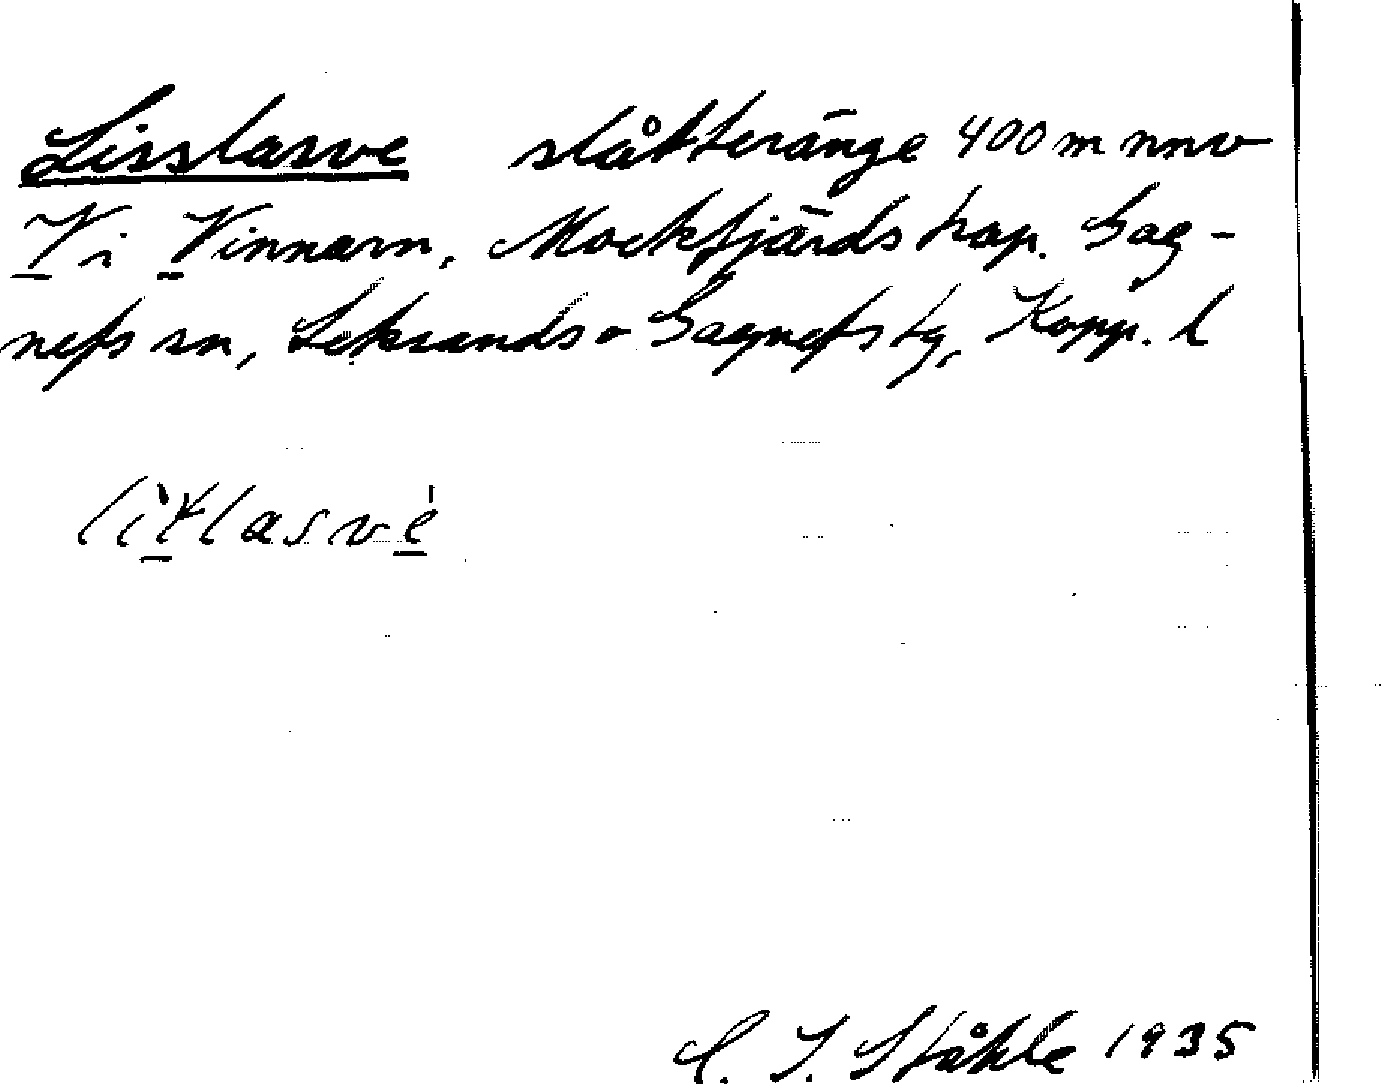 Lisslasve slåtteränge 400 m nnv
V i Vinnarn, Mockfjärds kap. Gag-
nefs sn, Leksands o Gagnefs tg, Kopp. l
C. I. Ståhle 1935